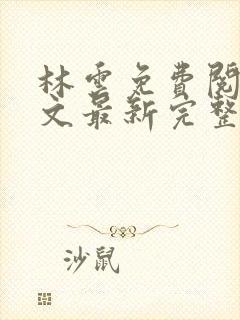 林雲免費閱
文最新完整
沙鼠